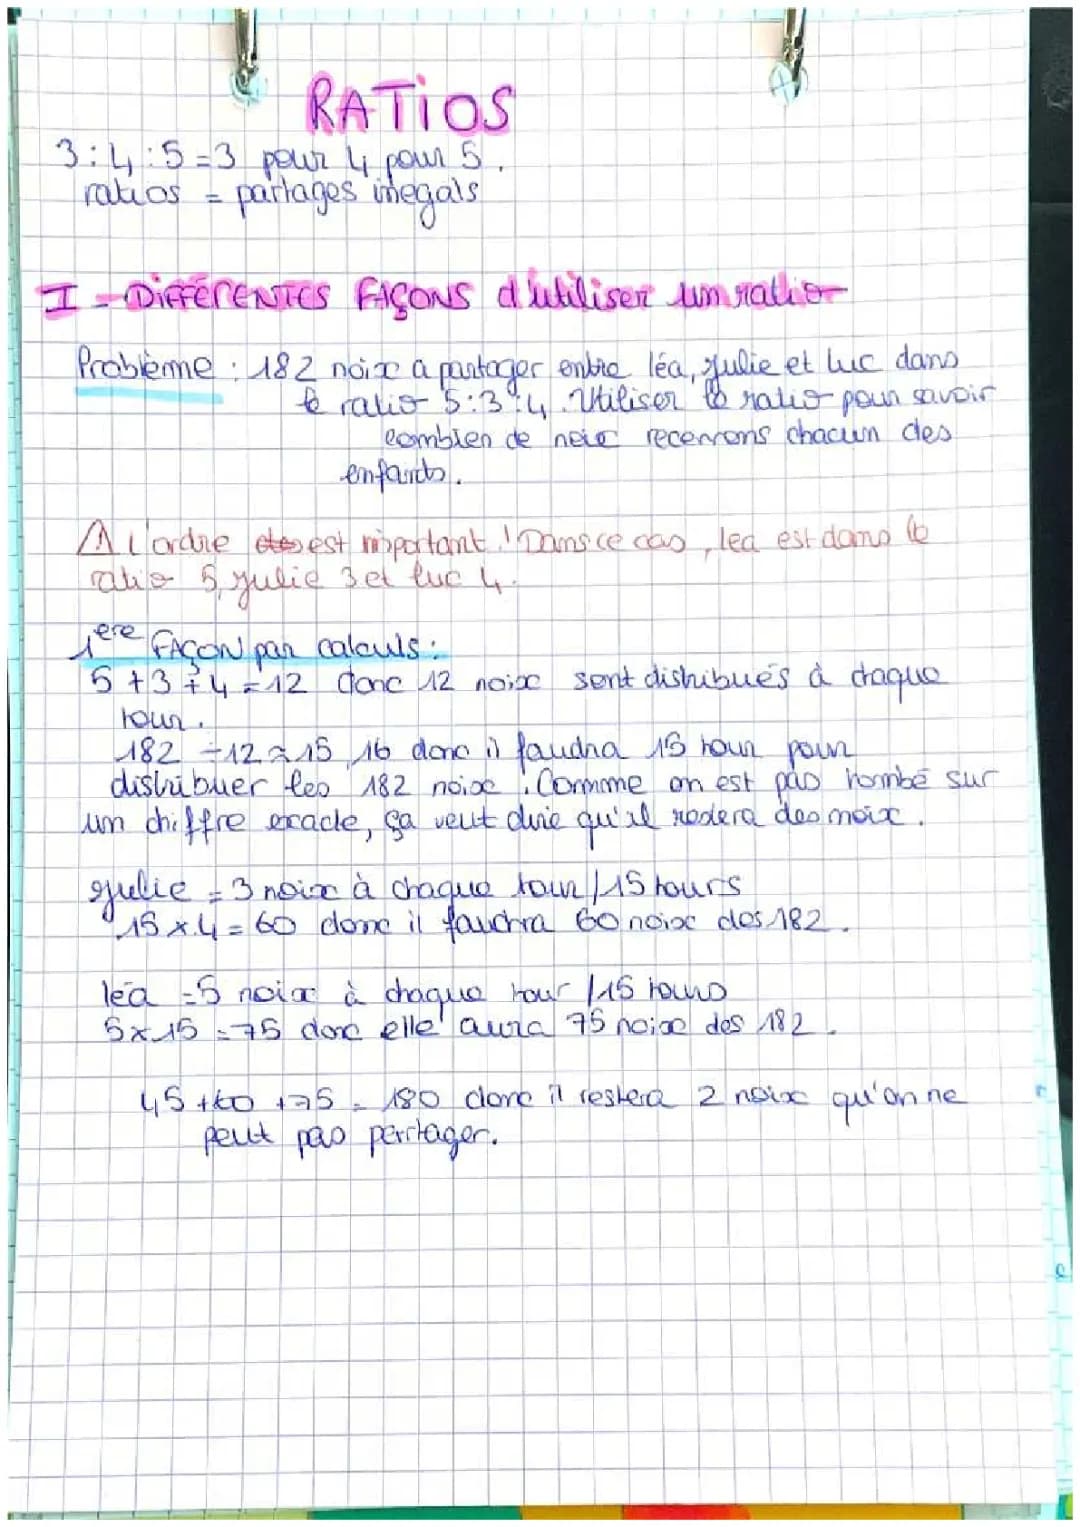 RATiOS
3:4:5=3 pour 4 pour 5.
ratios = partages inegals
I - DiFFÉRENTES FAÇONS d'utiliser un ratio
Problème : 182 noix a partager entre léa, Julie et luc dans
le ratio 5:3:4. Utiliser le ratio pour savoir
combien de noix recevrons chacun des
enfants.
⚠ L'ordre est important ! Dans ce cas, lea est dans le
ratio 5, Julie 3 et luc 4.
1ère FAÇON par calculs :
5+3+4=12 donc 12 noix sont distribués à chaque
tour.
182 ÷12≈15,16 donc il faudra 15 tour pour
distribuer les 182 noix. Comme on est pas tombé sur
un chiffre exacte, ça veut dire qu'il restera des noix.
Julie = 3 noix à chaque tour / 15 tours
15 x 4 = 60 donc il faudra 60 noix des 182.
léa = 5 noix à chaque tour / 15 tours
5x15 = 75 donc elle aura 75 noix des 182.
45 + 60 + 75 = 180 donc il restera 2 noix qu'on ne
peut pas partager.